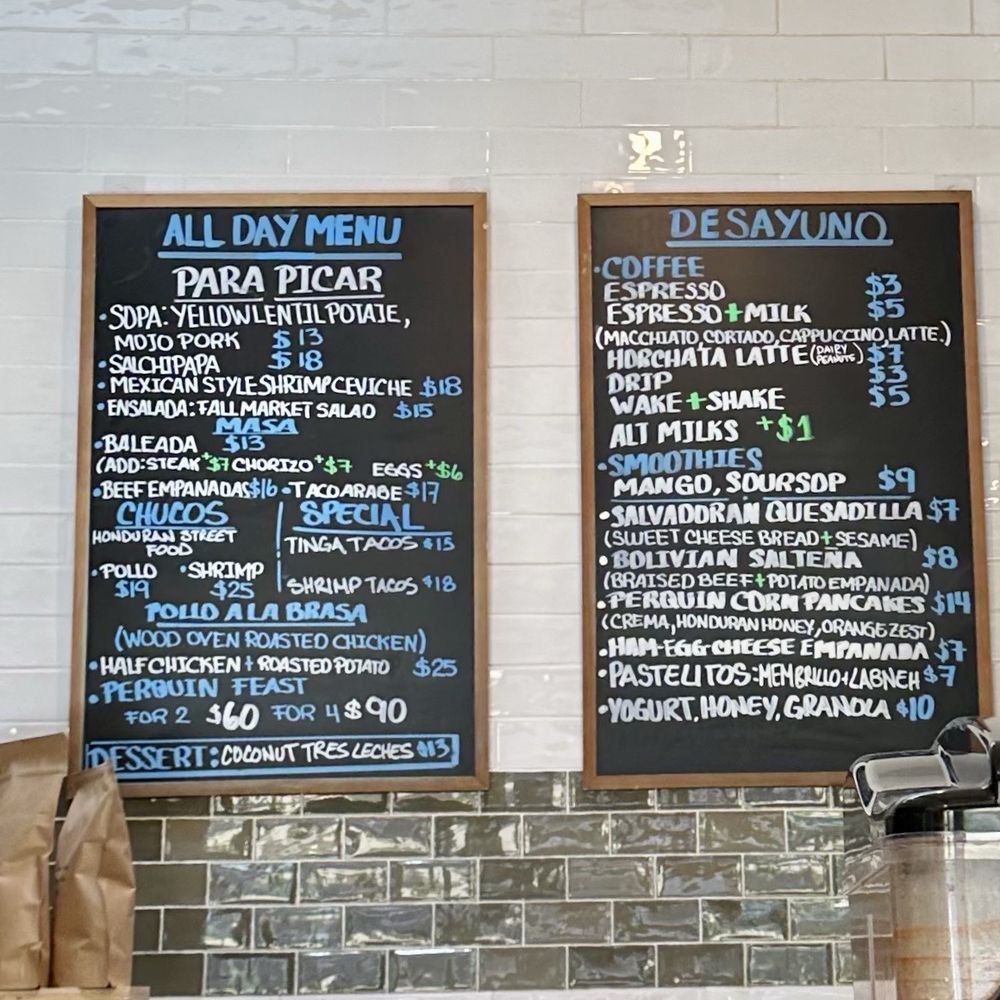 ALL DAY MENU
PARA PICAR
• SOPA: YELLOW LENTIL POTAJE,
MOJO PORK $13
• SALCHIPAPA $18
• MEXICAN STYLE SHRIMP CEVICHE $18
• ENSALADA: FALL MARKET SALAD $15
MASA
• BALEADA $13
(ADD: STEAK +$7 CHORIZO +$7 EGGS +$6
• BEEF EMPANADAS $16 • TACO ARABE $17
CHUCOS
HONDURAN STREET
FOOD
• POLLO • SHRIMP
$19 $25
SPECIAL
TINGA TACOS $15
SHRIMP TACOS $18
POLLO A LA BRASA
(WOOD OVEN ROASTED CHICKEN)
• HALF CHICKEN + ROASTED POTATO $25
• PERQUIN FEAST
FOR 2 $60 FOR 4 $90
DESSERT: COCONUT TRES LECHES $13
DESAYUNO
• COFFEE
ESPRESSO $3
ESPRESSO + MILK $5
(MACCHIATO, CORTADO, CAPPUCCINO, LATTE.)
HORCHATA LATTE (DAIRY PEANUTS) $7
DRIP $3
WAKE + SHAKE $5
ALT MILKS +$1
• SMOOTHIES
MANGO, SOURSOP $9
• SALVADORAN QUESADILLA $7
(SWEET CHEESE BREAD + SESAME)
• BOLIVIAN SALTEÑA $8
(BRAISED BEEF + POTATO EMPANADA)
• PERQUIN CORN PANCAKES $14
(CREMA, HONDURAN HONEY, ORANGE ZEST)
• HAM-EGG-CHEESE EMPANADA $7
• PASTELITOS: MEMBRILLO + LABNEH $7
• YOGURT, HONEY, GRANOLA $10